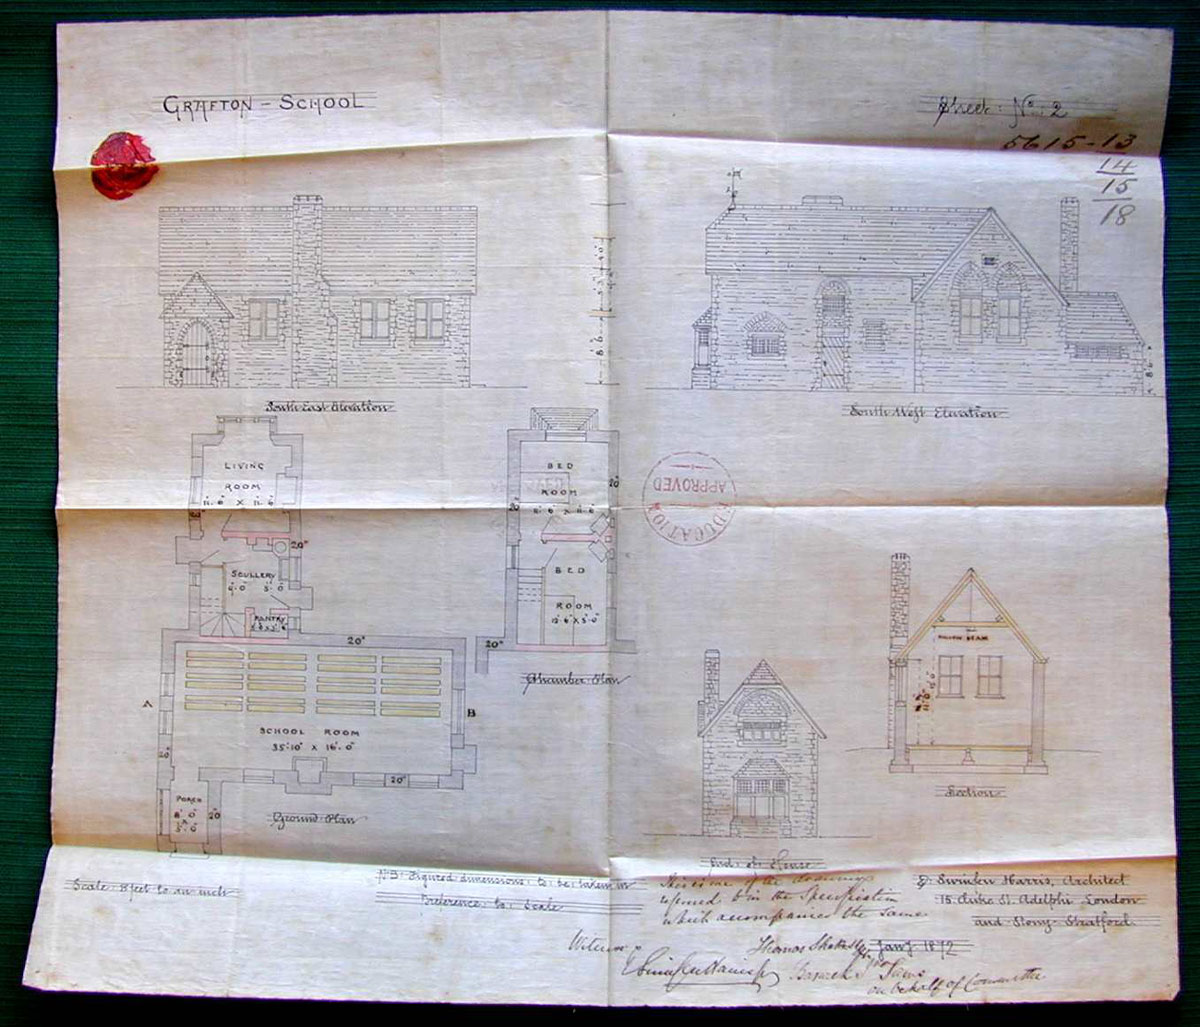 GRAFTON - SCHOOL
Sheet : No : 2
5615-13
14
15
18
South East Elevation
8' 6"
South West Elevation
8' 6"
LIVING
ROOM
11'. 6" X 11'. 6"
20"
SCULLERY
PANTRY
20"
A
B
SCHOOL ROOM
35'.10" X 16'.0"
20"
20"
PORCH
20"
Ground Plan
BED
ROOM
20"
BED
ROOM
20"
Chamber Plan
EDUCATION
APPROVED
End of House
COLLAR BEAM
Section
Scale : 8 feet to an inch
N.B. Figured dimensions : to : be : taken in
Preference : to : Scale
This is one of the drawings
referred to in the Specification
which accompanies the same
E. Swinfen Harris, Architect
15. Duke St. Adelphi London
and Stony Stratford.
Witness
Thomas
Jany 1872
E Swinfen Harris Jr
on behalf of Committee